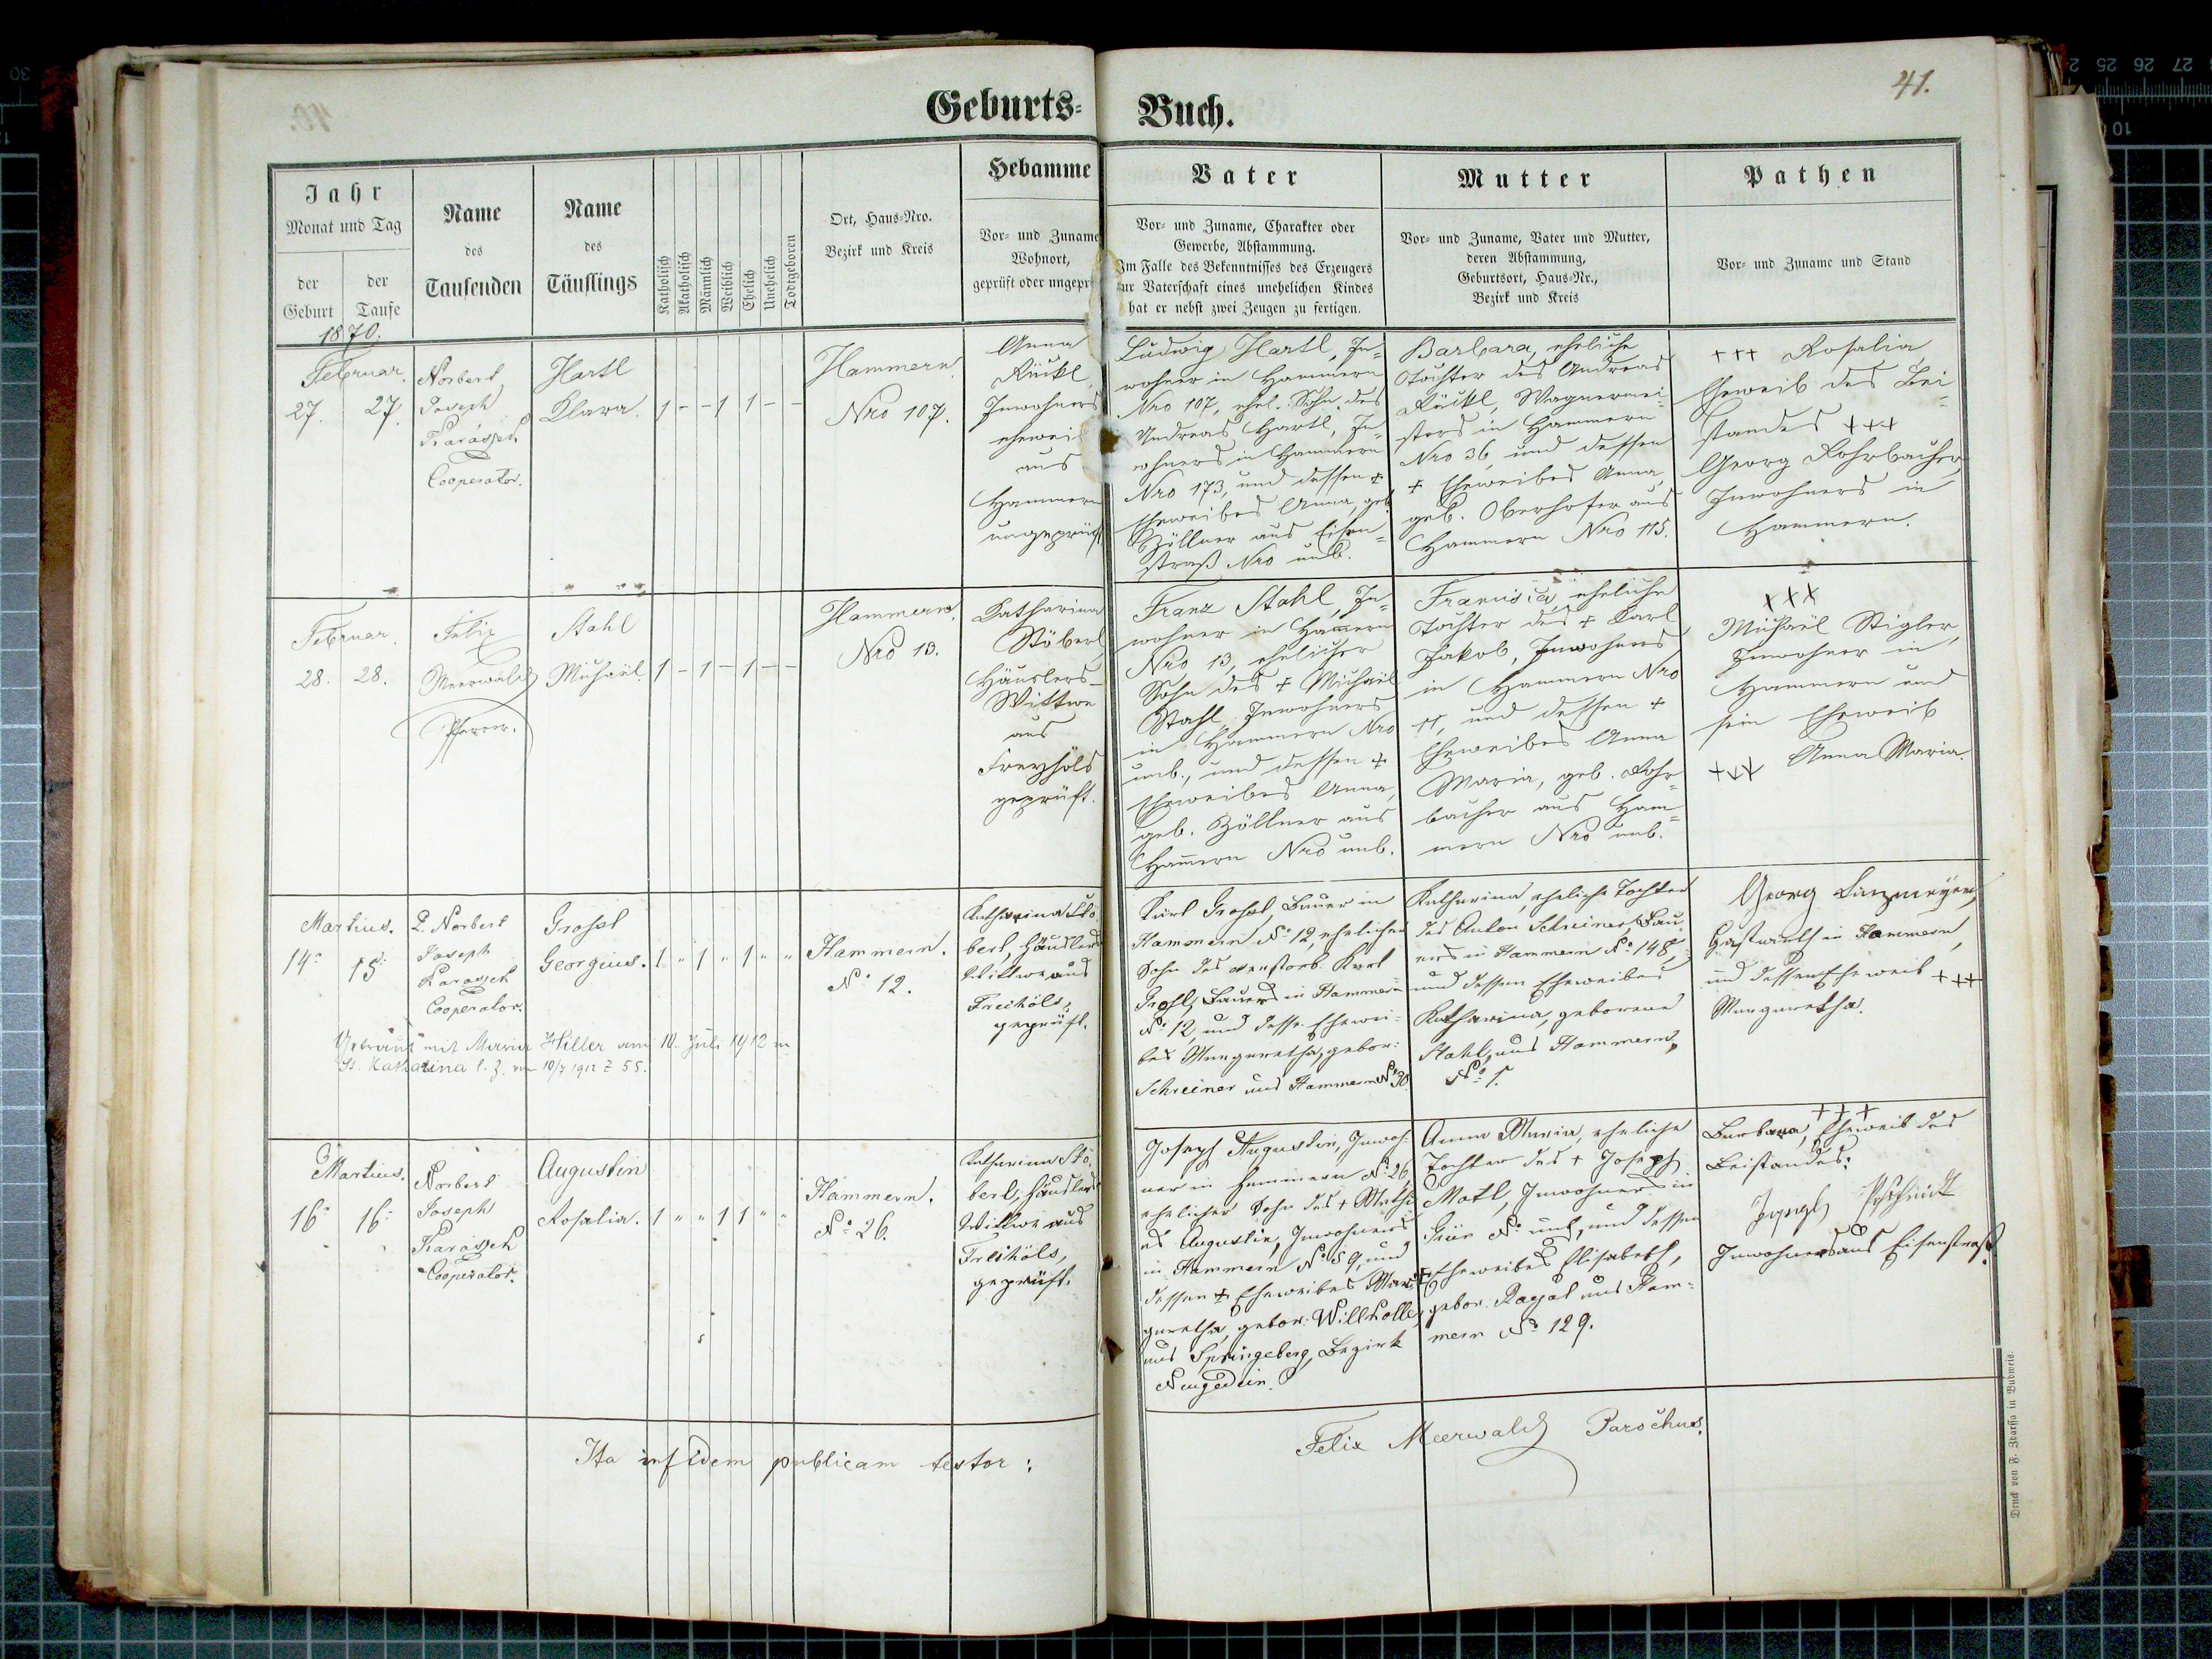 41.
Geburts-
Buch.
Jahr
Monat und Tag
der Geburt
der Taufe
Name
des
Taufenden
Name
des
Täuflings
Katholisch
Akatholisch
Männlich
Weiblich
Ehelich
Unehelich
Todtgeboren
Ort, Haus-Nro.
Bezirk und Kreis
Hebamme
Vor- und Zuname
Wohnort,
geprüft oder ungepr
Vater
Vor- und Zuname, Charakter oder
Gewerbe, Abstammung.
Im Falle des Bekenntnisses des Erzeugers
zur Vaterschaft eines unehelichen Kindes
hat er nebst zwei Zeugen zu fertigen.
Mutter
Vor- und Zuname, Vater und Mutter,
deren Abstammung,
Geburtsort, Haus-Nr.,
Bezirk und Kreis
Pathen
Vor- und Zuname und Stand
1870.
Februar.
27. 27.
Norbert
Joseph
Karásek
Cooperator.
Hartl
Klara.
1 - - 1 1 - -
Hammern.
Nro 107.
Anna
Rückl,
Inwohners
eheweib
aus
Hammern
ungeprüft
Ludwig Hartl, In-
wohner in Hammern
Nro 107, ehel. Sohn des
Andreas Hartl, In-
wohners in Hammern
Nro 173, und dessen +
Eheweibes Anna, geb.
Zöllner aus Eisen-
straß Nro unb.
Barbara, eheliche
Tochter des Andreas
Rückl, Wagnermei-
sters in Hammern
Nro 36, und dessen
+ Eheweibes Anna,
geb. Oberhofer aus
Hammern Nro 115.
+++ Rosalia,
Eheweib des Bei-
standes +++
Georg Rohrbacher
Inwohners in
Hammern.
Februar.
28. 28.
Felix
Meerwald
Pfarrer.
Stahl
Michaël
1 - 1 - 1 - -
Hammern.
Nro 13.
Katharina
Stöberl
Häuslers-
Wittwe
aus
Freyhöls
geprüft.
Franz Stahl, In-
wohner in Hamern
Nro 13, ehelicher
Sohn des + Michaël
Stahl, Inwohners
in Hammern Nro
unb., und dessen +
Eheweibes Anna,
geb. Zöllner aus
Hamern Nro unb.
Francisca, eheliche
Tochter des + Karl
Jakob, Inwohners
in Hammern Nro
11, und dessen +
Eheweibes Anna
Maria, geb. Rohr-
bacher aus Ham-
mern Nro unb.
+++
Michaël Stigler,
Inwohner in
Hammern und
sein Eheweib
+++ Anna Maria.
Martius.
14. 15.
P. Norbert
Joseph
Karásek
Cooperator.
Grossl
Georgius.
1 " 1 " 1 " "
Hammern.
No 12.
Katharina Stö-
berl, Häuslers
Wittwe aus
Freihöls,
geprüft.
Karl Grossl, Bauer in
Hammern No 12, ehelicher
Sohn des verstorb. Karl
Grossl, Bauers in Hammern
No 12, und dessen Ehewei-
bes Margaretha, gebor:
Schreiner aus Hammern No 30.
Katharina, eheliche Tochter
des Anton Schreiner, Bau-
ers in Hammern No 148,
und dessen Eheweibes
Katharina, geborene
Stahl, aus Hammern,
No 1.
Georg
Gastwirth in Hammern,
und dessen Eheweib +++
Margaretha.
Getraut mit Maria Hiller am 10. Juli 1912 in
St. Katharina l. Z. vom 10/7 1912 Z 55.
Martius.
16. 16.
Norbert
Joseph
Karásek
Cooperator.
Augustin
Rosalia.
1 " " 1 1 " "
Hammern.
No 26.
Katharina Stö-
berl, Häuslers
Wittwe aus
Freihöls,
geprüft.
Joseph Augustin, Inwoh-
ner in Hammern No 26,
ehelicher Sohn des + Mathi-
as Augustin, Inwohners
in Hammern No 59, und
dessen + Eheweibes Mar-
garetha, gebor: Willholler,
aus Springeberg, Bezirk
Neugedein.
Anna Maria, eheliche
Tochter des + Joseph
Motl, Inwohners in
Grün No unb, und dessen
+ Eheweibes Elisabeth,
gebor. aus Ham-
mern No 129.
+++
Barbara, Eheweib des
Beistandes:
Joseph
Inwohners aus Eisenstraß.
Ita in fidem publicam testor:
Felix Meerwald Parochus.
Druck von F. Zdarssa in Budweis.